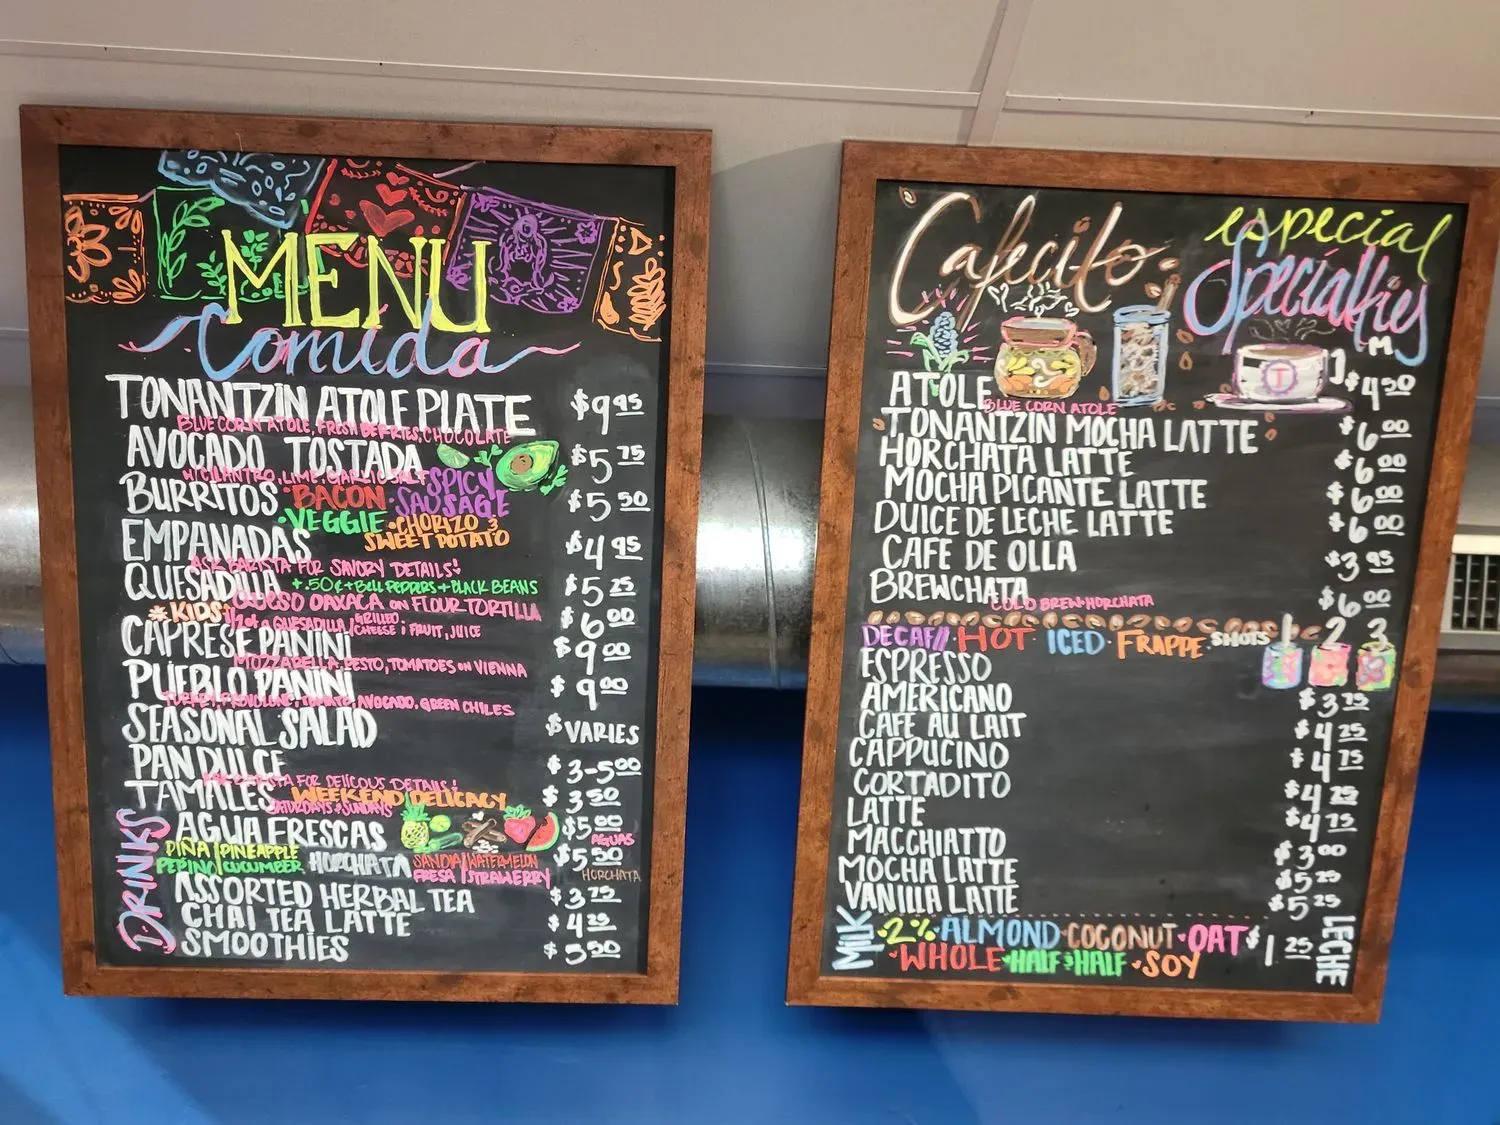 MENU
Comida
TONANTZIN ATOLE PLATE $9.95
BLUE CORN ATOLE, FRESH BERRIES, CHOCOLATE
AVOCADO TOSTADA $5.75
W/ CILANTRO, LIME, GARLIC SALT
BURRITOS •BACON •SPICY SAUSAGE $5.50
•VEGGIE •CHORIZO & SWEET POTATO
EMPANADAS $4.95
ASK BARISTA FOR SAVORY DETAILS!
QUESADILLA +.50¢ + BELL PEPPERS + BLACK BEANS $5.25
QUESO OAXACA ON FLOUR TORTILLA
KIDS: 1/2 of a QUESADILLA/GRILLED CHEESE; FRUIT, JUICE $6.00
CAPRESE PANINI $9.00
MOZZARELLA, PESTO, TOMATOES ON VIENNA
PUEBLO PANINI $9.00
TURKEY, PROVOLONE, TOMATO, AVOCADO, GREEN CHILES
SEASONAL SALAD $VARIES
PAN DULCE $3-5.00
ASK BARISTA FOR DELICOUS DETAILS!
TAMALES WEEKEND DELICACY $3.50
SATURDAYS & SUNDAYS
DRINKS
AGUA FRESCAS $5.00 AGUAS
PIÑA/PINEAPPLE HORCHATA SANDIA/WATERMELON $5.50 HORCHATA
PEPINO/CUCUMBER FRESA/STRAWBERRY
ASSORTED HERBAL TEA $3.75
CHAI TEA LATTE $4.25
SMOOTHIES $5.50
Cafecito
especial
Specialties
M
T
ATOLE $4.50
BLUE CORN ATOLE
TONANTZIN MOCHA LATTE $6.00
HORCHATA LATTE $6.00
MOCHA PICANTE LATTE $6.00
DULCE DE LECHE LATTE $6.00
CAFE DE OLLA $3.95
BREWCHATA $6.00
COLD BREW+HORCHATA
DECAF// HOT ICED • FRAPPE • SHOTS 1 2 3
ESPRESSO
AMERICANO $3.75
CAFE AU LAIT $4.25
CAPPUCINO $4.75
CORTADITO $4.25
LATTE $4.75
MACCHIATTO $3.00
MOCHA LATTE $5.25
VANILLA LATTE $5.25
MILK •2% •ALMOND •COCONUT •OAT $1.25 LECHE
•WHOLE •HALF & HALF •SOY